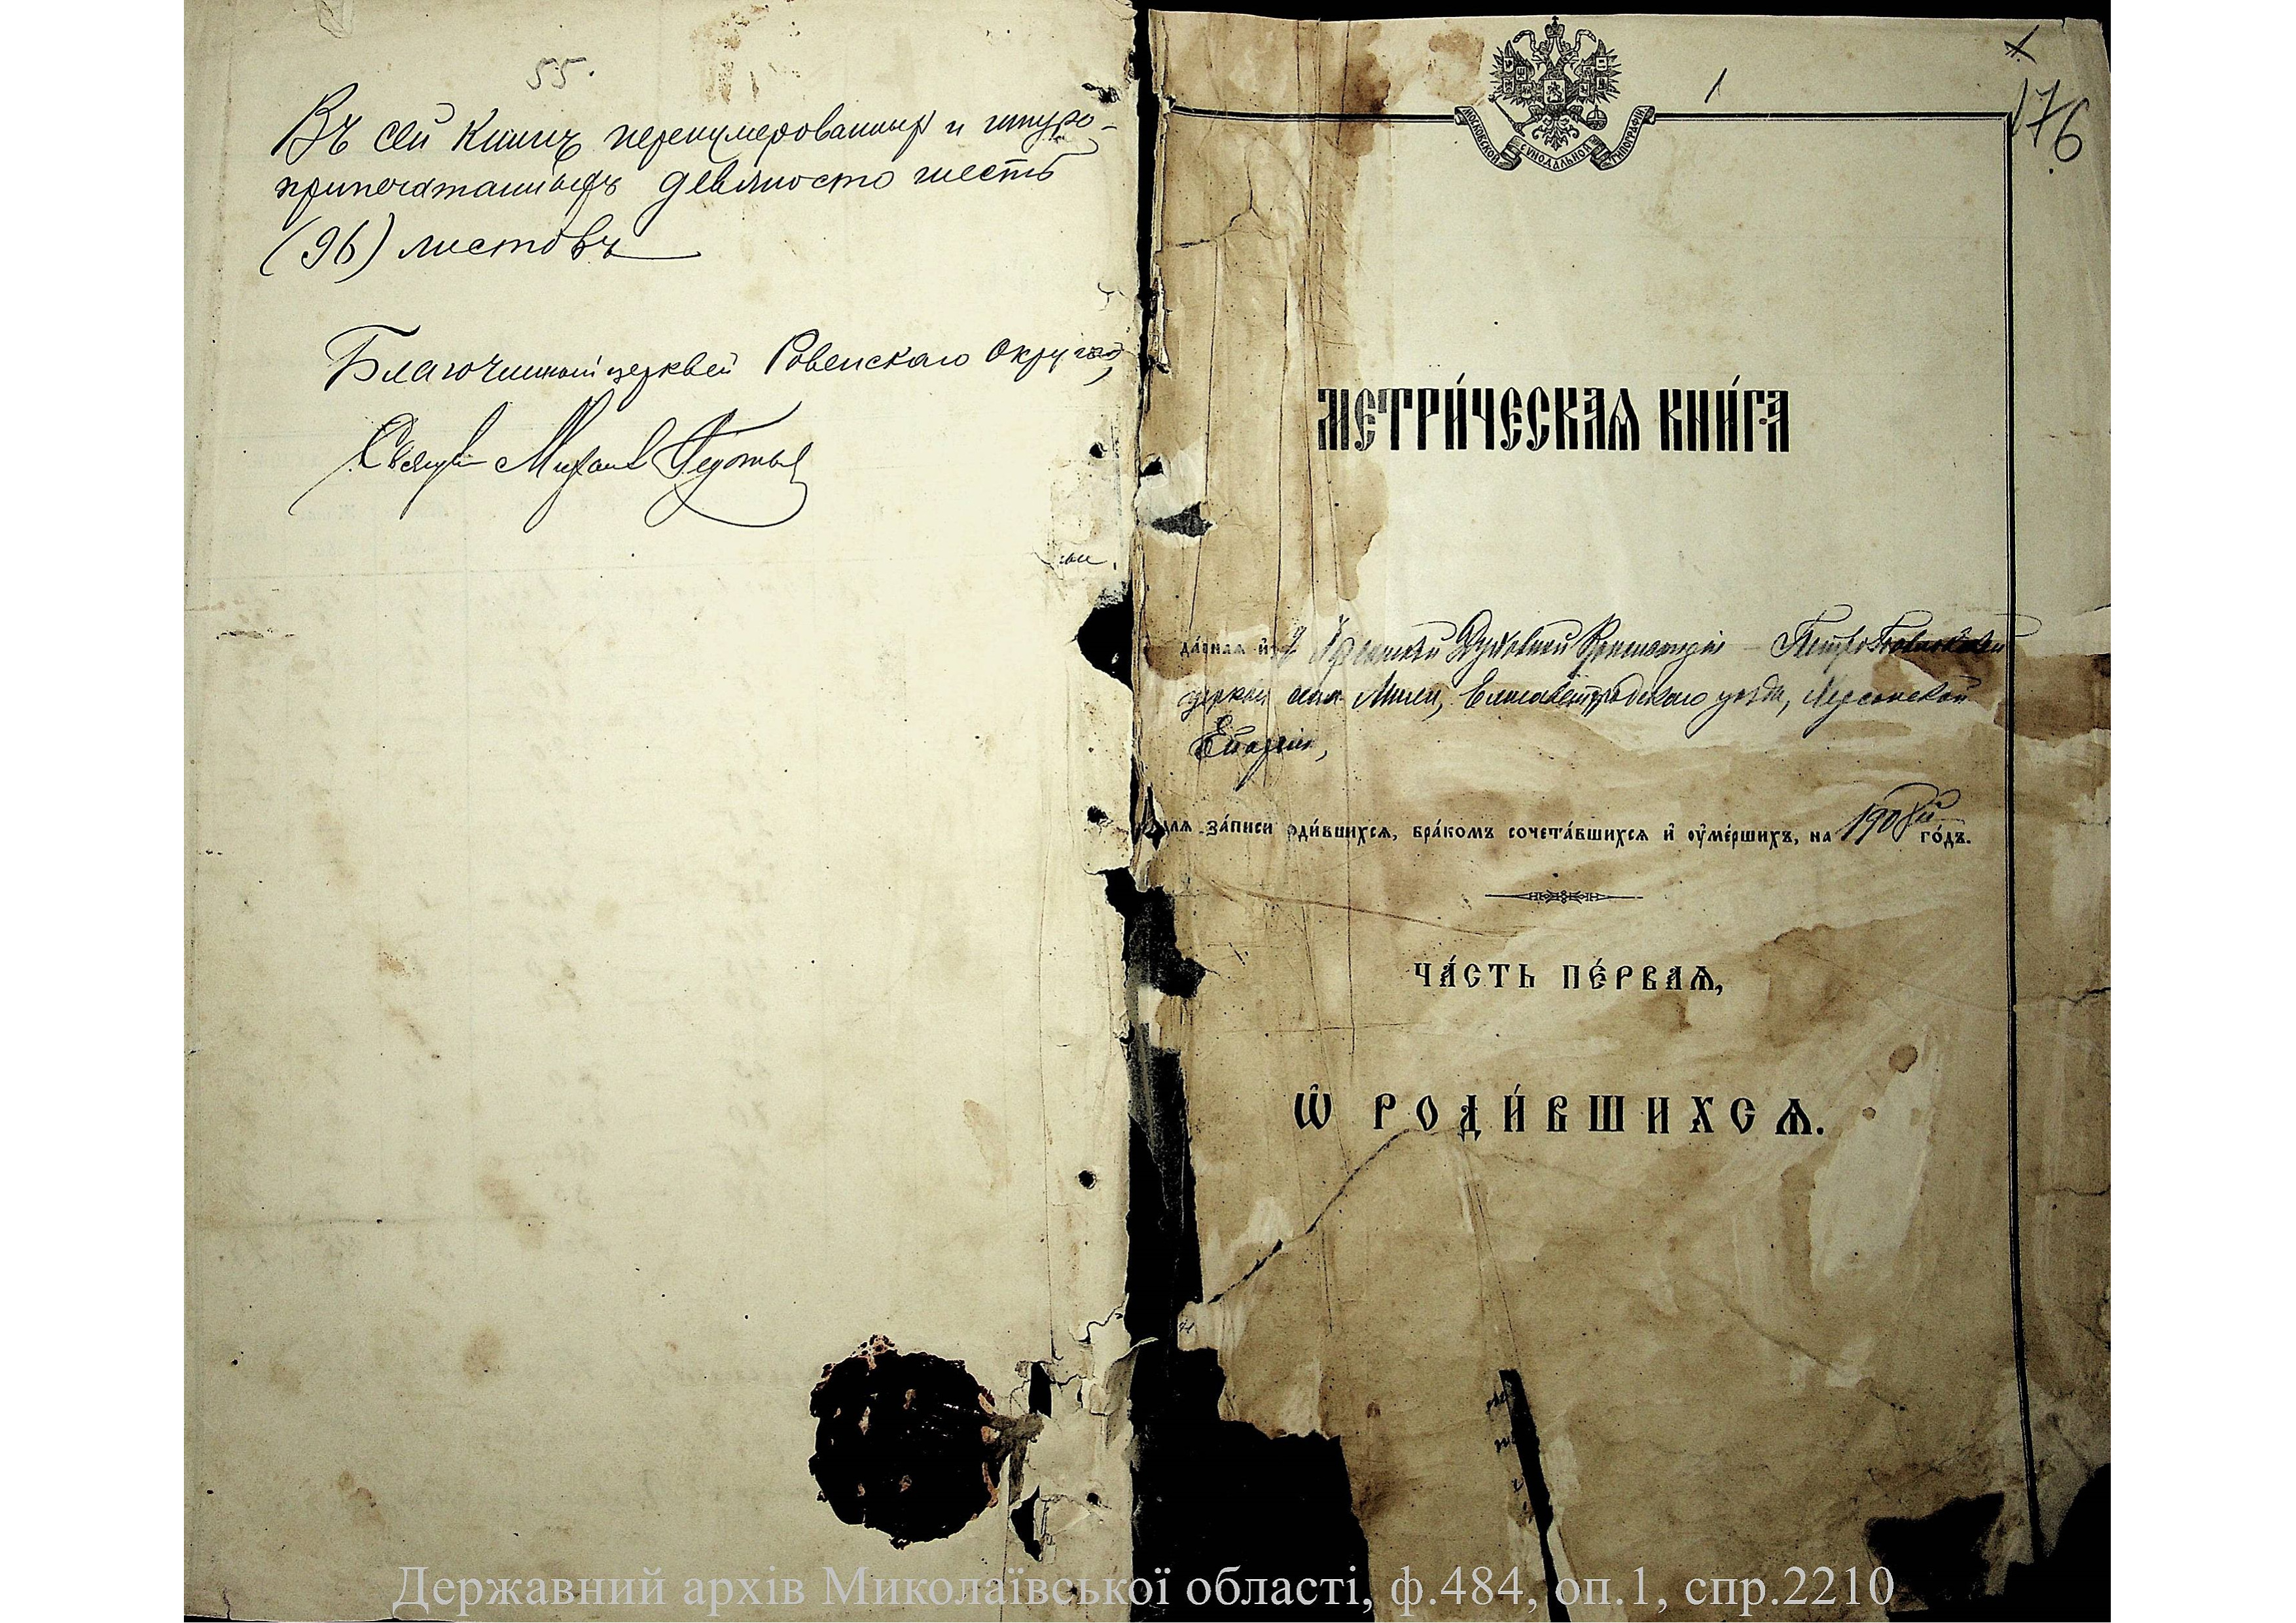 55.
Въ сей книгѣ перенумерованныхъ и шнуро-
припечатанныхъ девяносто шесть
(96) листовъ
Благочинный церквей Ровенскаго Округа,
Священ Михаил
1
176
МОСКОВСКОЙ СѴНОДАЛЬНОЙ ТИПОГРАФІИ
МЕТРИ́ЧЕСКАѦ КНИ́ГА
да́ннаѧ и҆з Духовной Консисторіи – Петро-Павловской
церкви села Елисаветградскаго уѣзда, Херсонской
Епархіи,
для за́писи роди́вшихсѧ, бра́комъ сочета́вшихсѧ и҆ ѹ҆ме́ршихъ, на го́дъ.
ЧА́СТЬ ПЕ́РВАѦ,
Ѡ҆ РОДИ́ВШИХСѦ.
Державний архів Миколаївської області, ф.484, оп.1, спр.2210